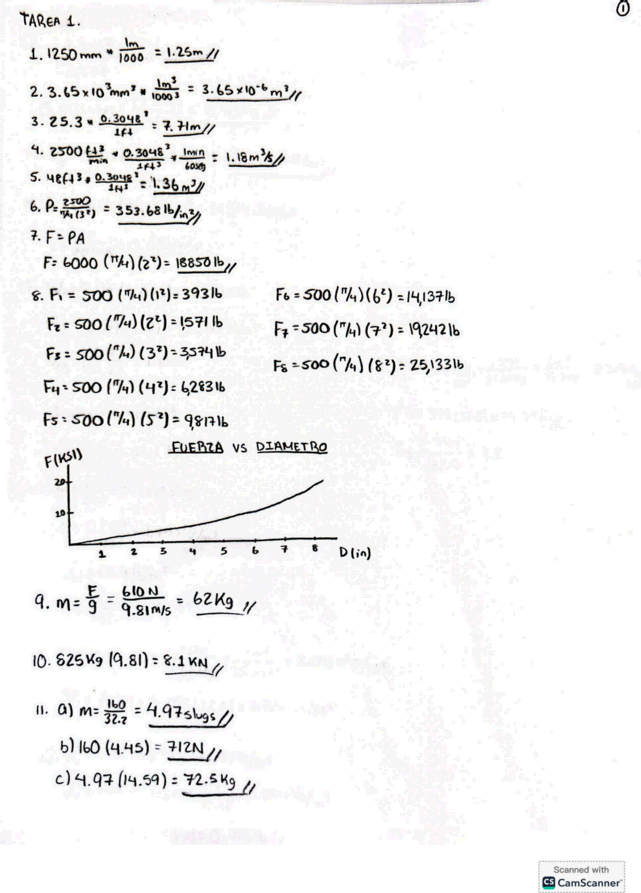 ①
TAREA 1.
1. 1250 mm * 1m/1000 = 1.25m //
2. 3.65 x 10³ mm³ * 1m³/1000³ = 3.65 x 10⁻⁶ m³ //
3. 25.3 * 0.3048³/1ft = 7.71m //
4. 2500 ft3/min * 0.3048³/1ft³ * 1min/60seg = 1.18 m³/s //
5. 48ft3 * 0.3048³/1ft³ = 1.36 m³ //
6. P= 2500/π/4 (3²) = 353.68 lb/in² //
7. F= PA
F= 6000 (π/4) (2²) = 18850 lb //
8. F1 = 500 (π/4) (1²) = 393 lb F6 = 500 (π/4) (6²) = 14,137 lb
F2 = 500 (π/4) (2²) = 1,571 lb F7 = 500 (π/4) (7²) = 19,242 lb
F3 = 500 (π/4) (3²) = 3,574 lb F8 = 500 (π/4) (8²) = 25,133 lb
F4 = 500 (π/4) (4²) = 6,283 lb
F5 = 500 (π/4) (5²) = 9,817 lb
FUERZA VS DIAMETRO
F(KSI)
20
10
1 2 3 4 5 6 7 8 D(in)
9. m= F/g = 610 N/9.81m/s = 62 Kg //
10. 825 Kg (9.81) = 8.1 KN //
11. a) m= 160/32.2 = 4.97 slugs //
b) 160 (4.45) = 712N //
c) 4.97 (14.59) = 72.5 Kg //
Scanned with
CS CamScanner